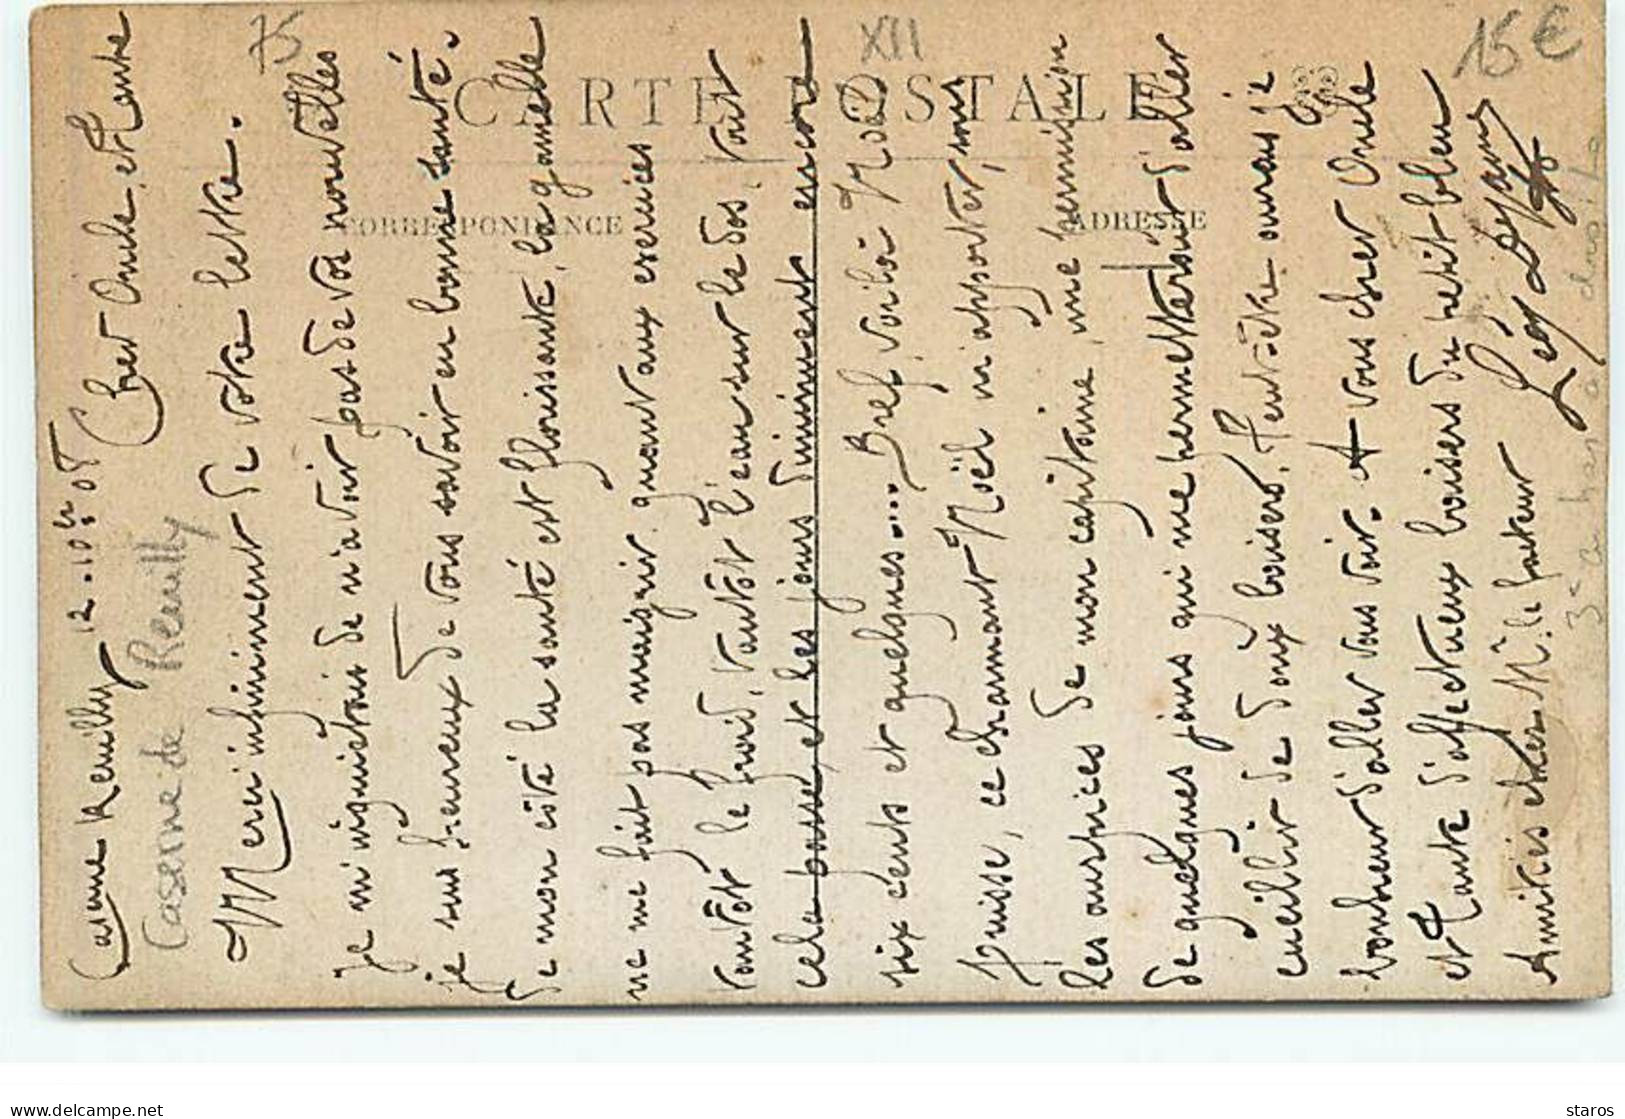 Caserne Reuilly 12.10bre 08
Caserne de Reuilly
75
XII
15€
CARTE POSTALE
CORRESPONDANCE
ADRESSE
Cher Oncle, et Tante
Merci infiniment de votre lettre.
Je m'inquiétais de n'avoir pas de vos nouvelles
je suis heureux de vous savoir en bonne santé.
de mon côté la santé est florissante, la gamelle
ne me fait pas maigrir, quant aux exercices
tantôt le froid, tantôt l'eau sur le dos, tout
cela passe, et les jours diminuent encore
six cents et quelques.... Bref, voilà Noël
puisse, ce charmant Noël m'apporter, sous
les auspices de mon capitaine, une permission
de quelques jours qui me permettrait d'aller
cueillir de doux baisers. Peut-être aurai-je
bonheur d'aller vous voir. A vous cher Oncle
et Tante d'affectueux baisers du petit bleu
Amitiés chez Mr. le facteur
3e en bas à droite
delcampe.net
staros